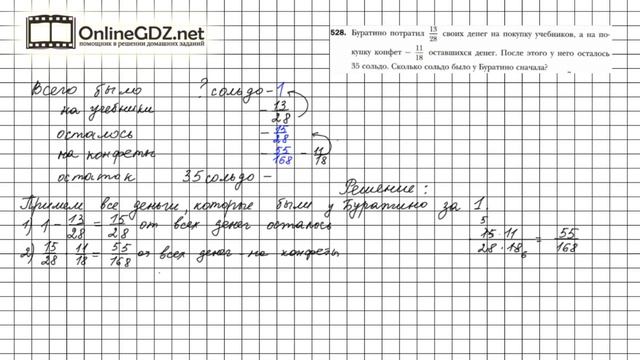 OnlineGDZ.net
ПОМОЩНИК В РЕШЕНИИ ДОМАШНИХ ЗАДАНИЙ
528. Буратино потратил 13/28 своих денег на покупку учебников, а на по-
купку конфет – 11/18 оставшихся денег. После этого у него осталось
35 сольдо. Сколько сольдо было у Буратино сначала?
Всего было ? сольдо – 1
на учебники – 13/28
осталось – 15/28
на конфеты – 55/168 – 11/18
остаток 35 сольдо –
Решение:
Примем все деньги, которые были у Буратино за 1.
1) 1 – 13/28 = 15/28 от всех денег осталось
2) 15/28 · 11/18 = 55/168 от всех денег - на конфеты
5
15 · 11 / 28 · 18 = 55/168
6